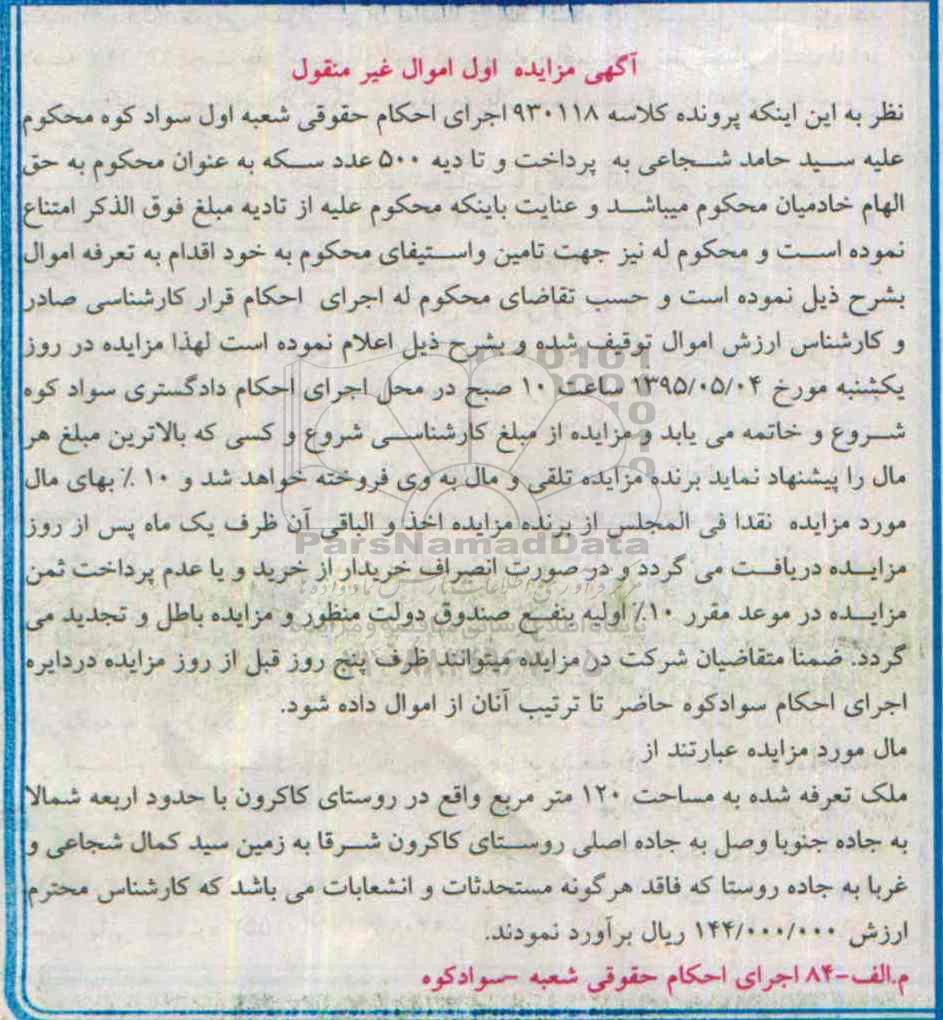 آگهی مزایده اول اموال غیر منقول
نظر به این اینکه پرونده کلاسه ۹۳۰۱۱۸ اجرای احکام حقوقی شعبه اول سواد کوه محکوم
علیه سید حامد شجاعی به پرداخت و تا دیه ۵۰۰ عدد سکه به عنوان محکوم به حق
الهام خادمیان محکوم میباشد و عنایت باینکه محکوم علیه از تادیه مبلغ فوق الذکر امتناع
نموده است و محکوم له نیز جهت تامین واستیفای محکوم به خود اقدام به تعرفه اموال
بشرح ذیل نموده است و حسب تقاضای محکوم له اجرای احکام قرار کارشناسی صادر
و کارشناس ارزش اموال توقیف شده و بشرح ذیل اعلام نموده است لهذا مزایده در روز
یکشنبه مورخ ۱۳۹۵/۰۵/۰۴ ساعت ۱۰ صبح در محل اجرای احکام دادگستری سواد کوه
شروع و خاتمه می یابد و مزایده از مبلغ کارشناسی شروع و کسی که بالاترین مبلغ هر
مال را پیشنهاد نماید برنده مزایده تلقی و مال به وی فروخته خواهد شد و ۱۰ ٪ بهای مال
مورد مزایده نقدا فی المجلس از برنده مزایده اخذ و الباقی آن ظرف یک ماه پس از روز
ParsNamadData
مزایده دریافت می گردد و در صورت انصراف خریدار از خرید و یا عدم پرداخت ثمن
مزایده در موعد مقرر ۱۰٪ اولیه بنفع صندوق دولت منظور و مزایده باطل و تجدید می
گردد. ضمنا متقاضیان شرکت در مزایده میتوانند ظرف پنج روز قبل از روز مزایده دردایره
اجرای احکام سوادکوه حاضر تا ترتیب آنان از اموال داده شود.
مال مورد مزایده عبارتند از
ملک تعرفه شده به مساحت ۱۲۰ متر مربع واقع در روستای کاکرون با حدود اربعه شمالا
به جاده جنوبا وصل به جاده اصلی روستای کاکرون شرقا به زمین سید کمال شجاعی و
غربا به جاده روستا که فاقد هرگونه مستحدثات و انشعابات می باشد که کارشناس محترم
ارزش ۱۴۴/۰۰۰/۰۰۰ ریال برآورد نمودند.
م.الف-۸۴ اجرای احکام حقوقی شعبه -سوادکوه